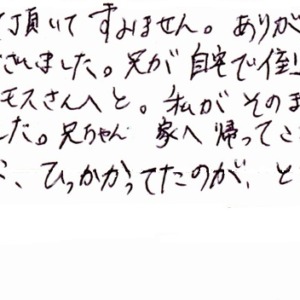 て頂いてすみません。ありが
ざいました。兄が自宅で倒
モスさんへと。私がそのま
した。兄ちゃん 家へ帰ってこ
、ひっかかってたのが、と